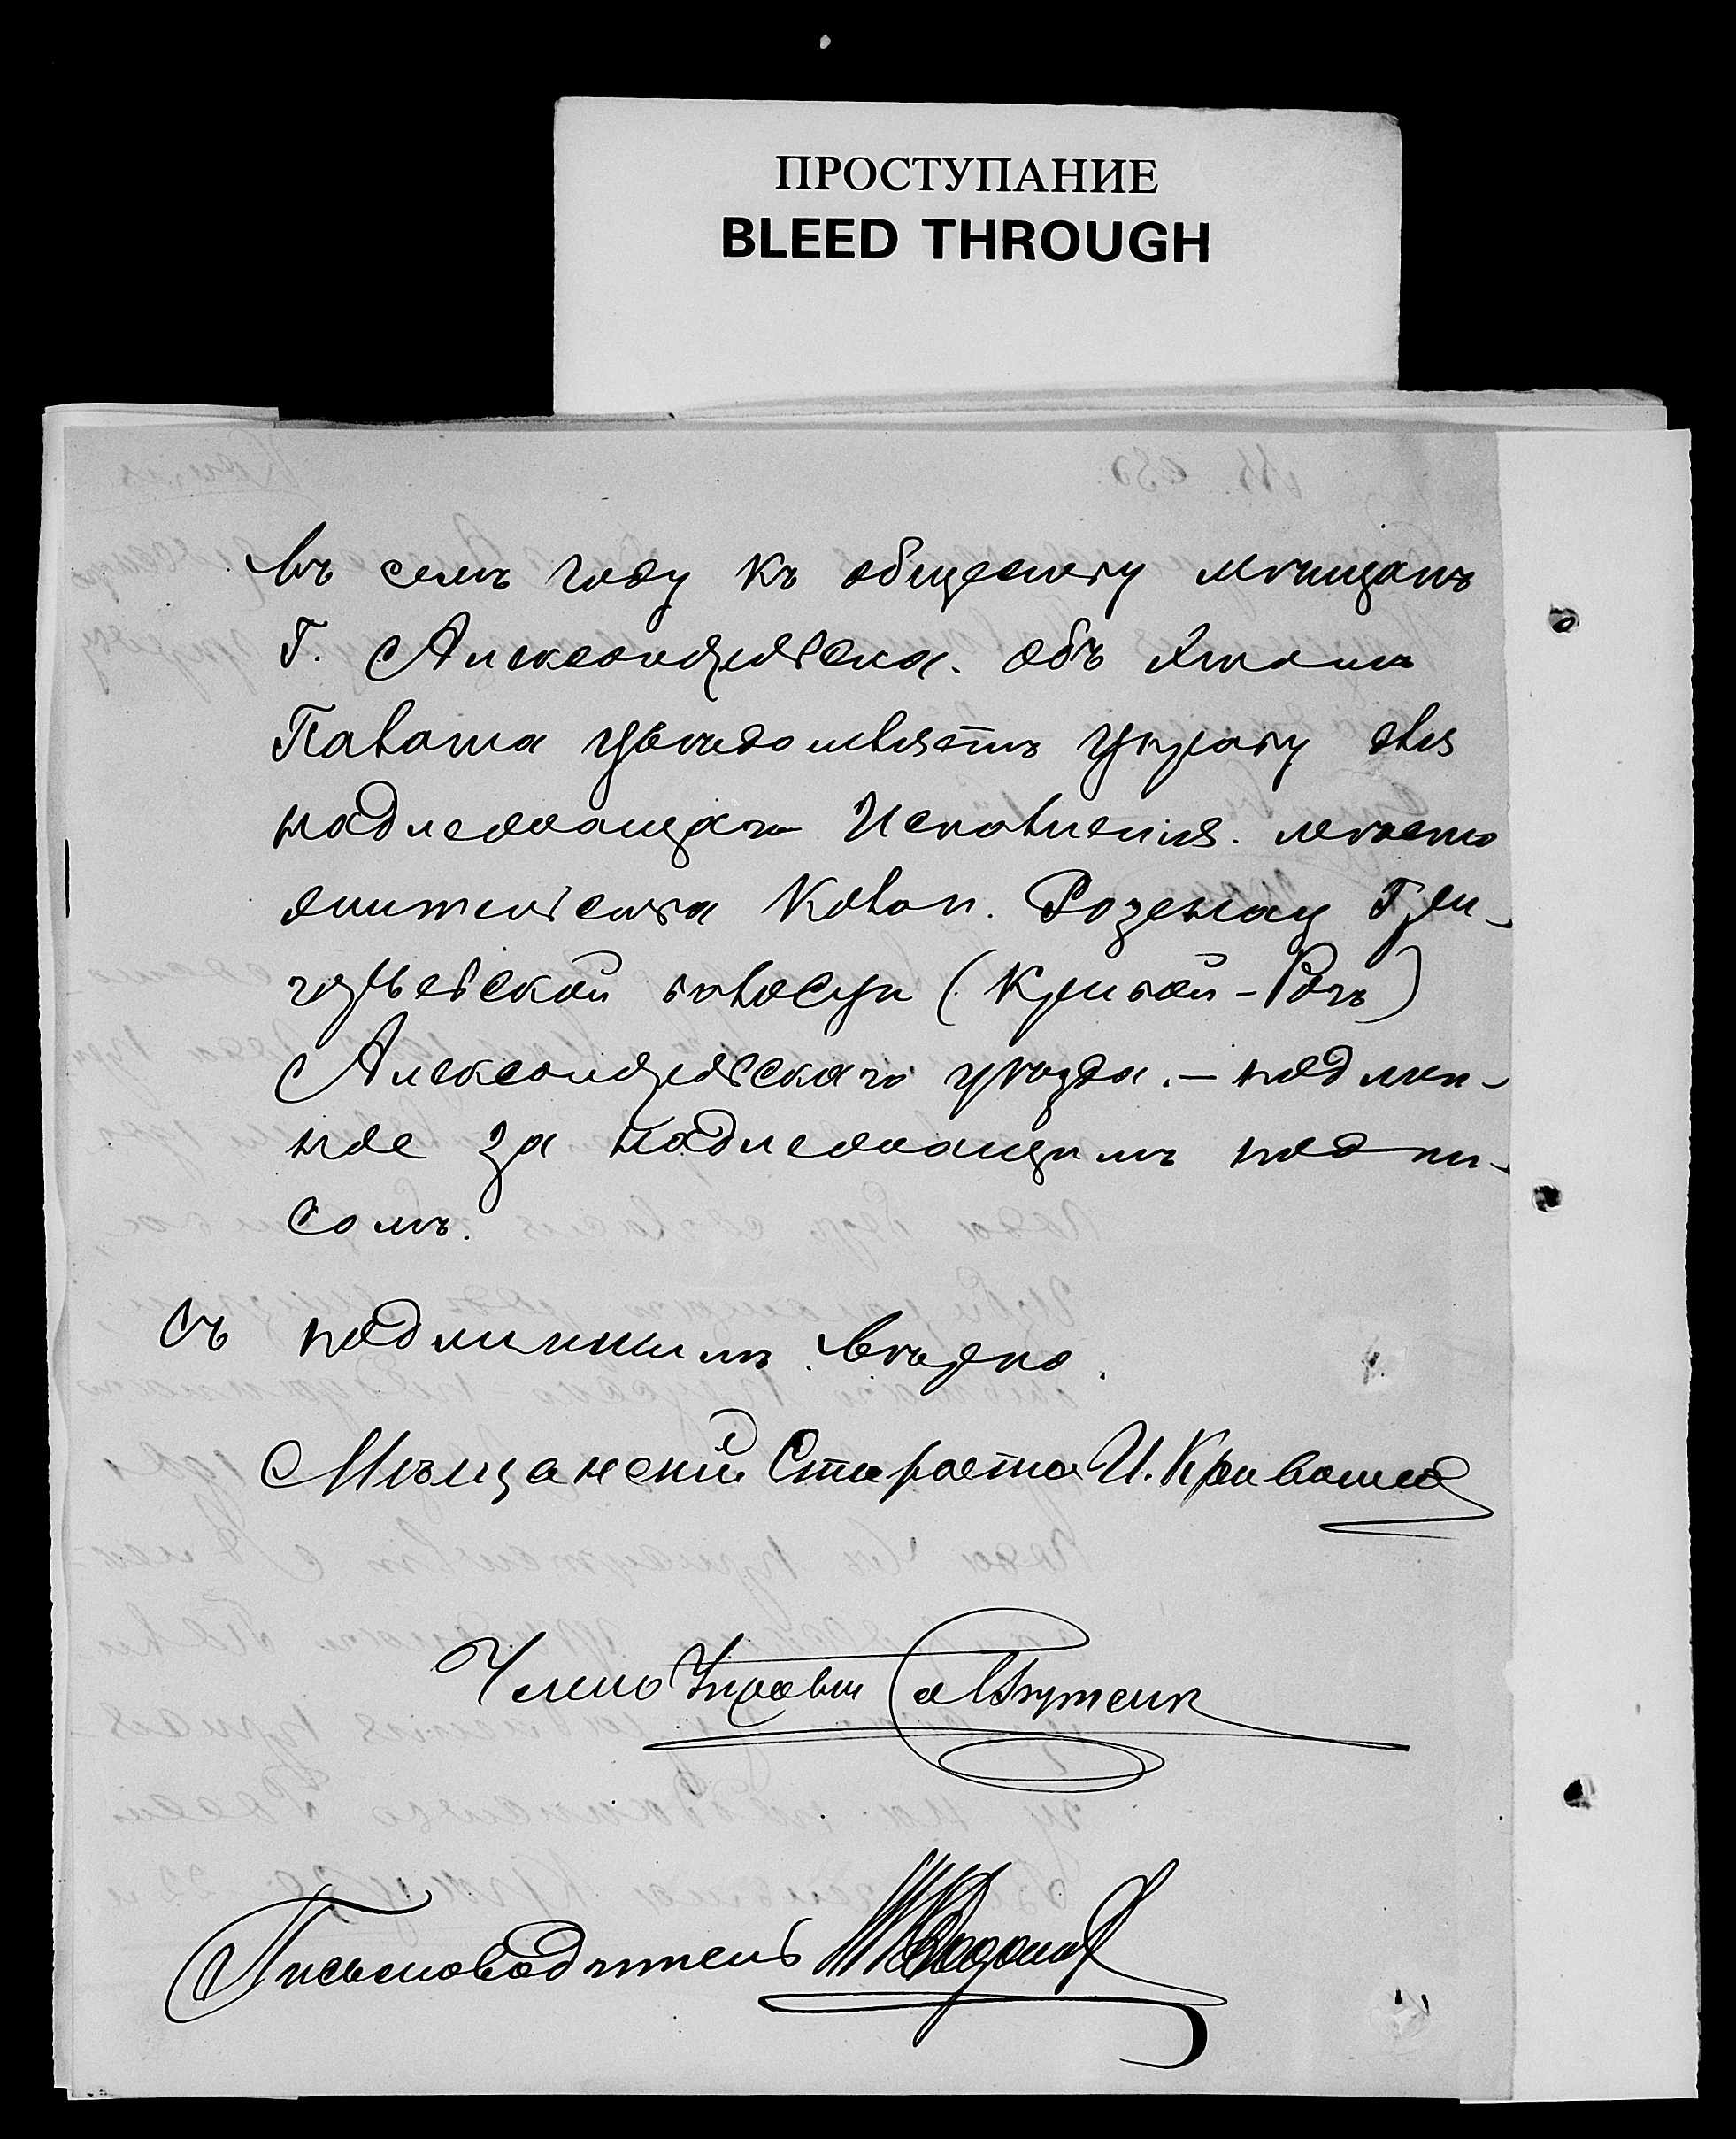 ПРОСТУПАНИЕ
BLEED THROUGH
въ семъ году къ обществу мѣщанъ
Г. Александровска. объ этомъ
Палата увѣдомляетъ управу для
надлежащаго Исполненія. мѣсто
жительства Колон. Розенгау Гри-
горьевской волости (Кривой-Рогъ)
Александровскаго уѣзда. — подлин-
ное за надлежащимъ подпи-
сомъ.
Съ подлиннымъ вѣрно.
Мѣщанскій Староста И.
Членъ Управы
Письмоводитель